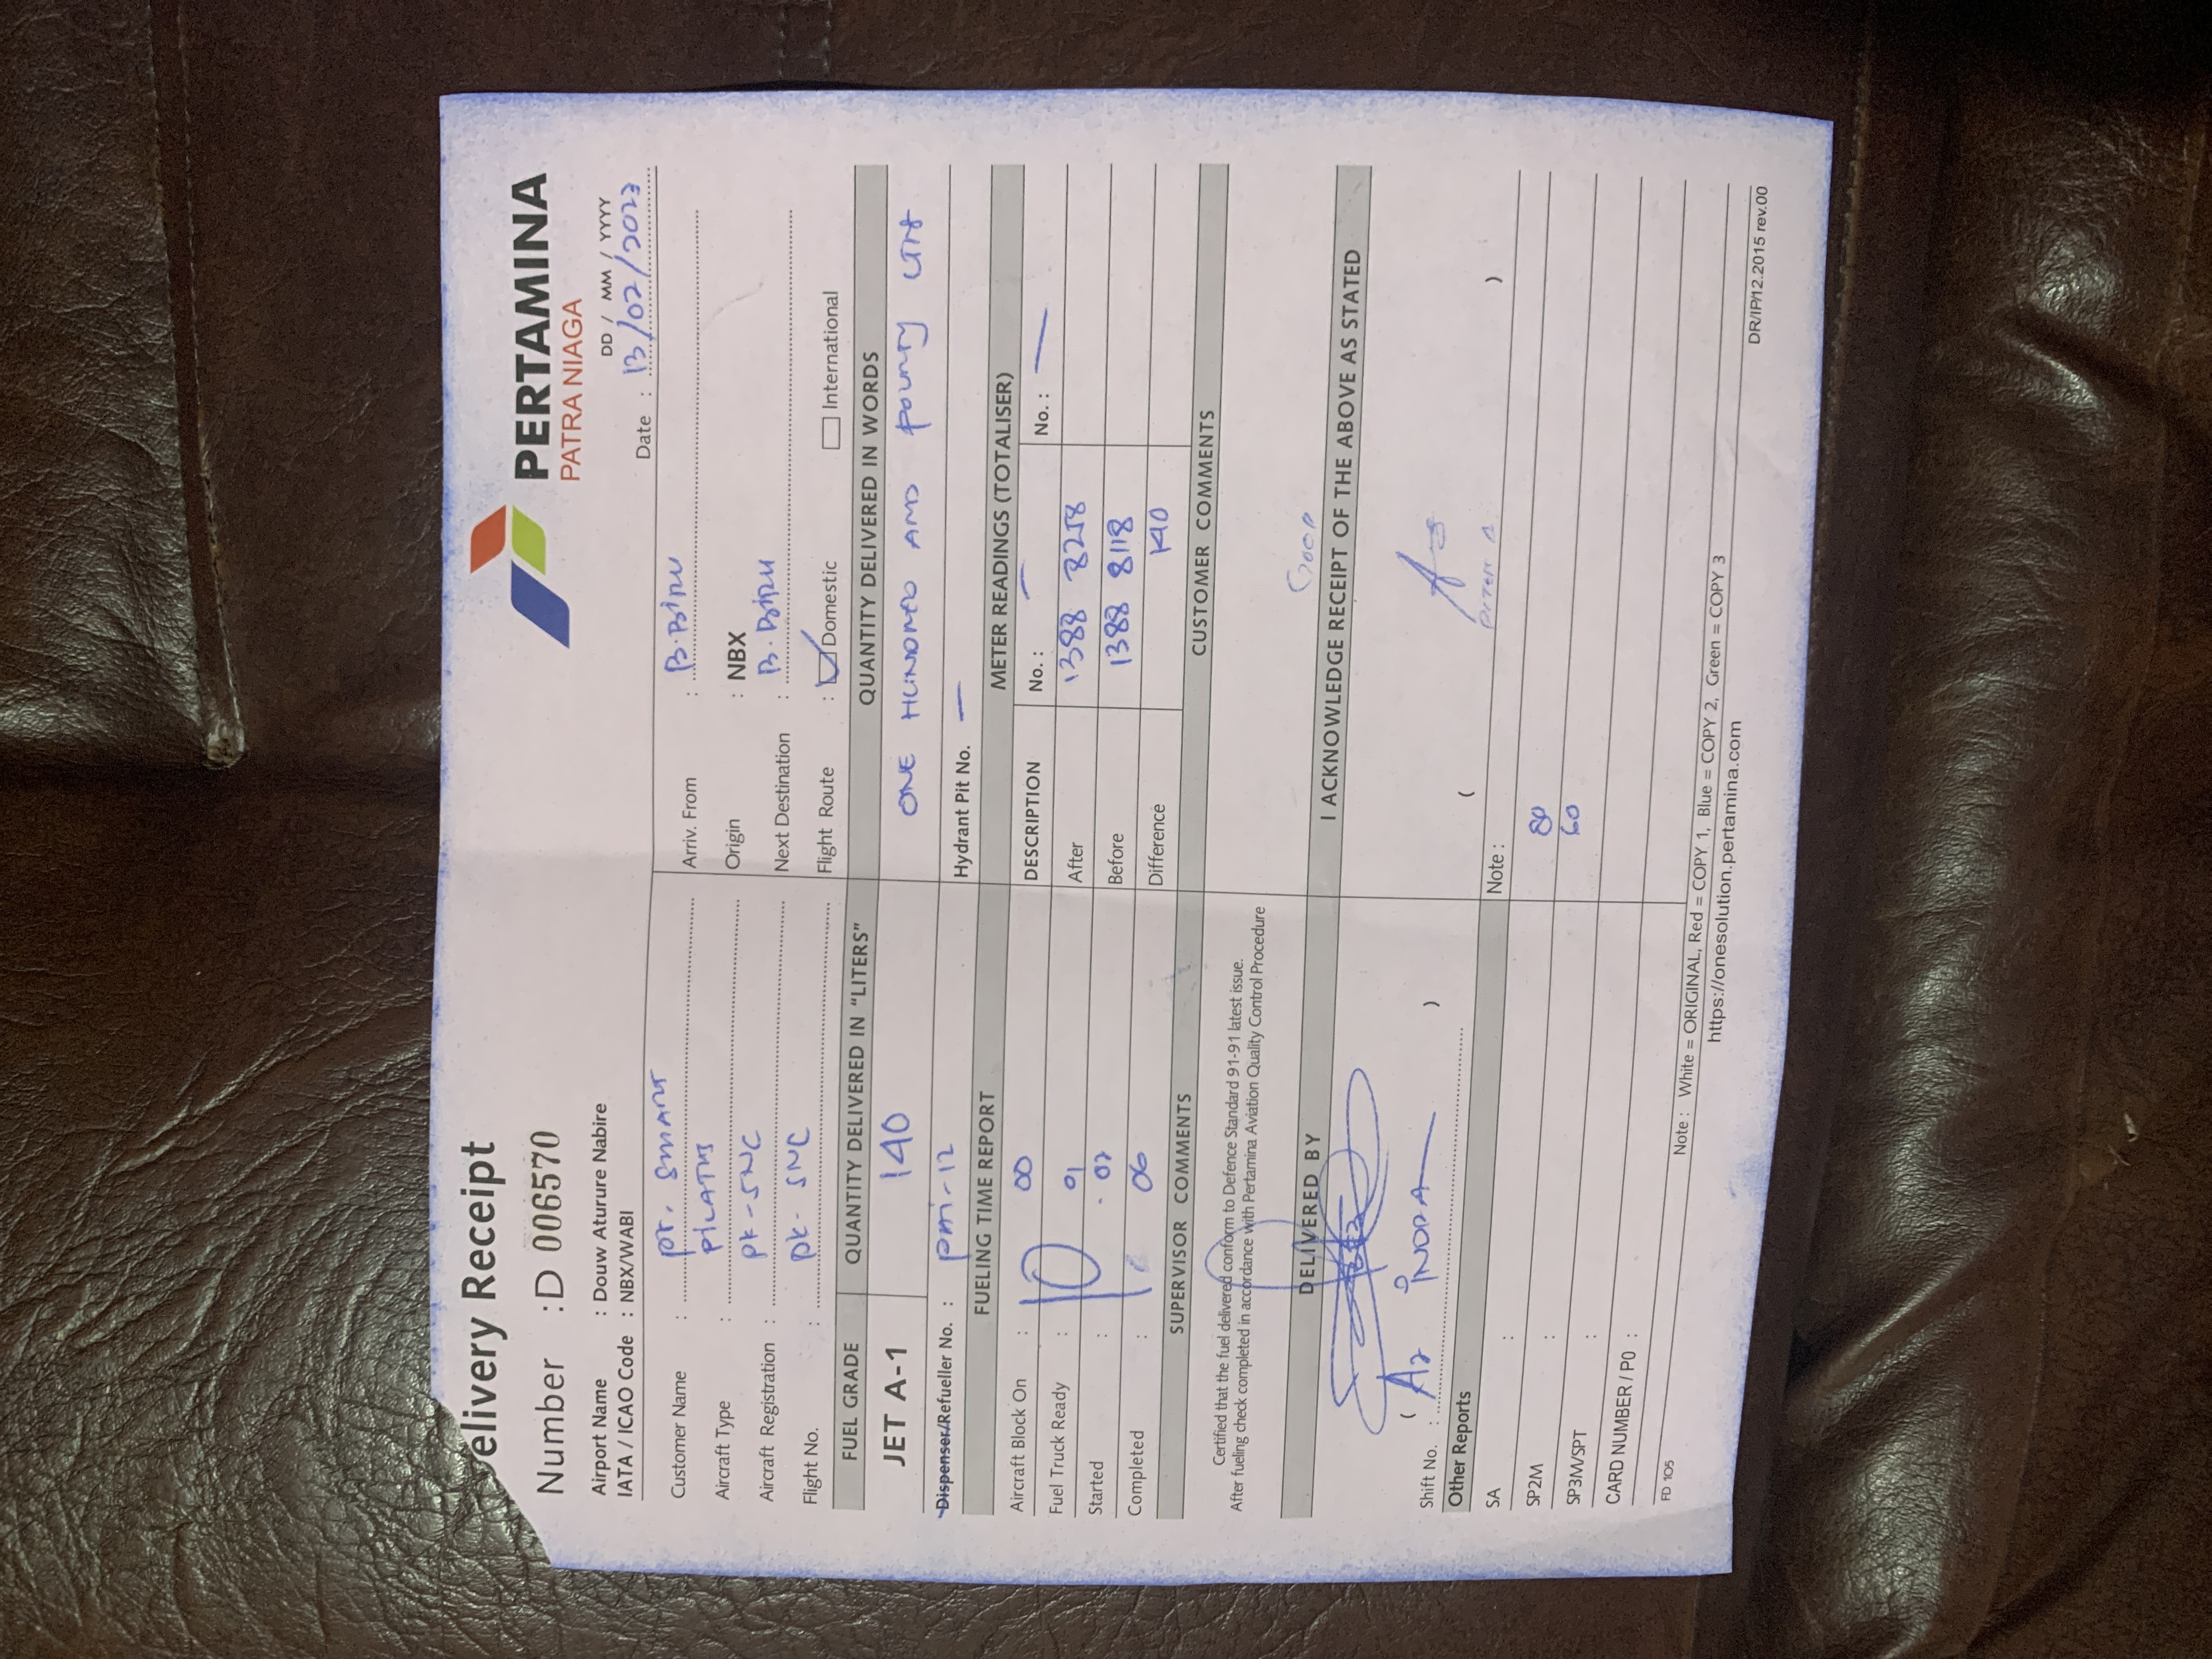 Delivery Receipt
Number : D 006570
PERTAMINA
PATRA NIAGA
Airport Name : Douw Aturure Nabire
IATA / ICAO Code : NBX/WABI
DD / MM / YYYY
Date : 13/02/2023
Customer Name : PT. SMART
Aircraft Type : PILATUS
Aircraft Registration : PK-SNC
Flight No. : PK-SNC
Arriv. From : B.BIRU
Origin : NBX
Next Destination : B.BIRU
Flight Route : Domestic International
FUEL GRADE QUANTITY DELIVERED IN "LITERS" QUANTITY DELIVERED IN WORDS
JET A-1 140 ONE HUNDRED AND FOURTY LTR
Dispenser/Refueller No. : PMI-12 Hydrant Pit No. —
FUELING TIME REPORT METER READINGS (TOTALISER)
DESCRIPTION No. : — No. : —
Aircraft Block On : 00
Fuel Truck Ready : 10 01
Started : 02
Completed : 06
After 1388 8258
Before 1388 8118
Difference 140
SUPERVISOR COMMENTS CUSTOMER COMMENTS
Certified that the fuel delivered conform to Defence Standard 91-91 latest issue.
After fueling check completed in accordance with Pertamina Aviation Quality Control Procedure
GOOD
DELIVERED BY I ACKNOWLEDGE RECEIPT OF THE ABOVE AS STATED
( INDRA ) ( )
Shift No. :
Other Reports Note :
SA :
SP2M : 80
SP3M/SPT : 60
CARD NUMBER / P0 :
FD 105
Note : White = ORIGINAL, Red = COPY 1, Blue = COPY 2, Green = COPY 3
https://onesolution.pertamina.com
DR/IP/12.2015 rev.00